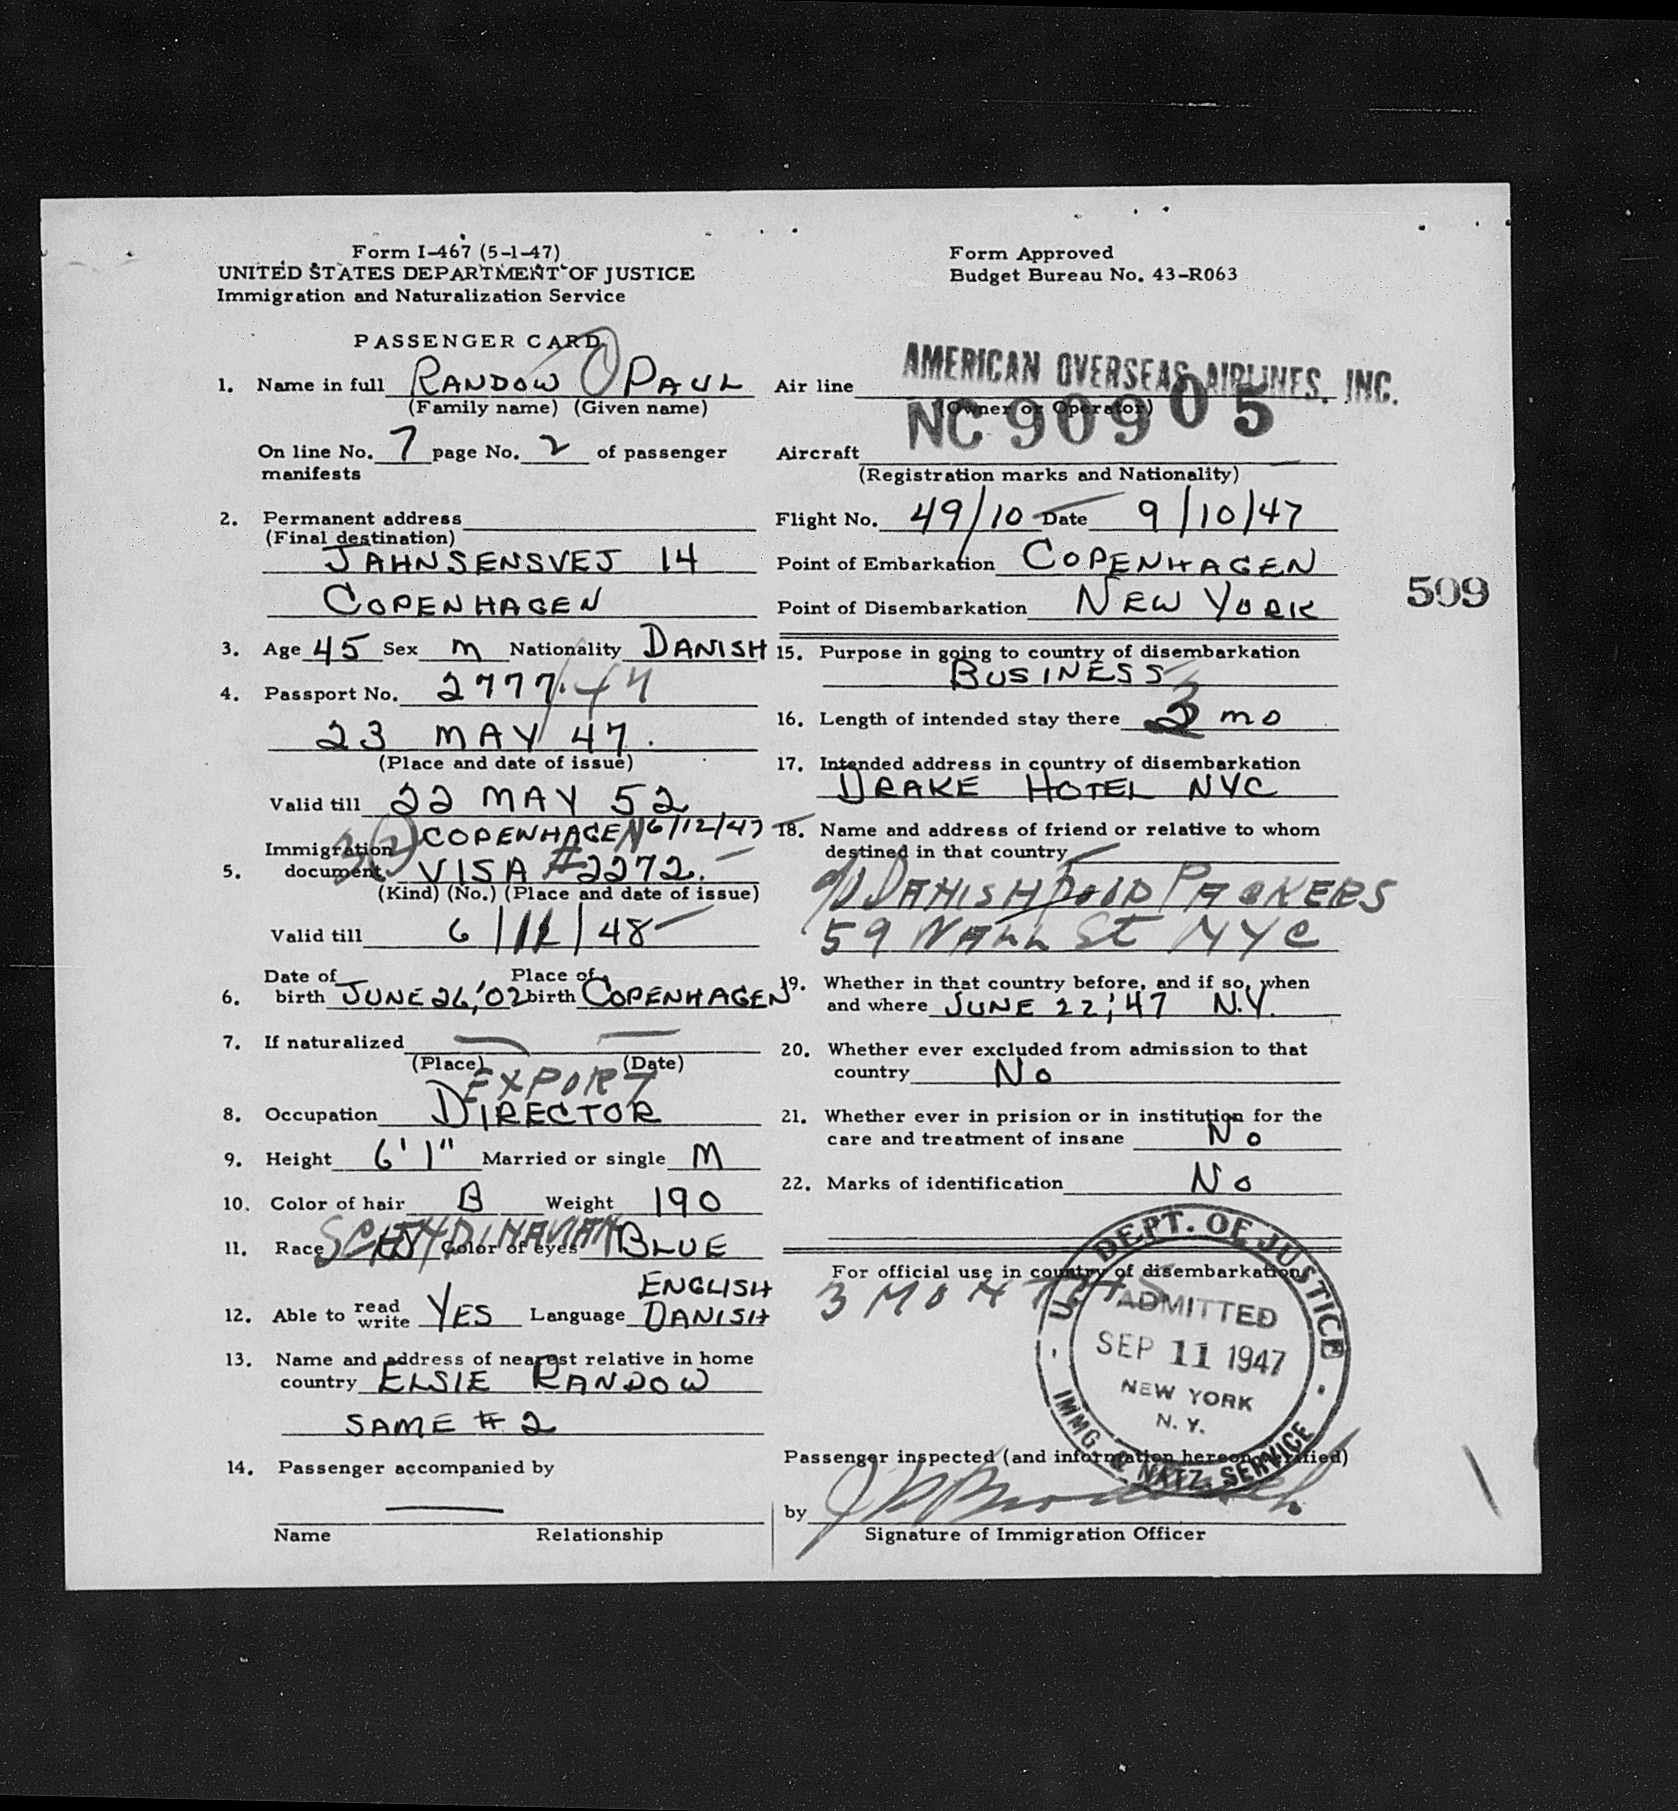 Form I-467 (5-1-47)
UNITED STATES DEPARTMENT OF JUSTICE
Immigration and Naturalization Service
Form Approved
Budget Bureau No. 43-R063
PASSENGER CARD
1. Name in full RANDOW PAUL
(Family name) (Given name)
On line No. 7 page No. 2 of passenger
manifests
2. Permanent address
(Final destination)
JAHNSENSVEJ 14
COPENHAGEN
3. Age 45 Sex M Nationality DANISH
4. Passport No. 2777/47
23 MAY 47.
(Place and date of issue)
Valid till 22 MAY 52
COPENHAGEN 6/12/47
Immigration
5. document VISA #2272.
(Kind) (No.) (Place and date of issue)
Valid till 6/11/48
Date of Place of
6. birth JUNE 26, '02 birth COPENHAGEN
7. If naturalized
(Place) (Date)
EXPORT
8. Occupation DIRECTOR
9. Height 6' 1" Married or single M
10. Color of hair B Weight 190
11. Race SCANDINAVIAN Color of eyes BLUE
ENGLISH
12. Able to read write YES Language DANISH
13. Name and address of nearest relative in home
country ELSIE RANDOW
SAME # 2
14. Passenger accompanied by
Name Relationship
Air line AMERICAN OVERSEAS AIRLINES, INC.
(Owner or Operator)
Aircraft NC 90905
(Registration marks and Nationality)
Flight No. 49/10 Date 9/10/47
Point of Embarkation COPENHAGEN
Point of Disembarkation NEW YORK
509
15. Purpose in going to country of disembarkation
BUSINESS
16. Length of intended stay there 3 mo
17. Intended address in country of disembarkation
DRAKE HOTEL NYC
18. Name and address of friend or relative to whom
destined in that country
DANISH FOOD PACKERS
59 WALL St NYC
19. Whether in that country before, and if so, when
and where JUNE 22,'47 N.Y.
20. Whether ever excluded from admission to that
country No
21. Whether ever in prision or in institution for the
care and treatment of insane No
22. Marks of identification No
For official use in country of disembarkation
3 MONTHS
U.S. DEPT. OF JUSTICE
ADMITTED
SEP 11 1947
NEW YORK
N. Y.
IMMG. & NATZ. SERVICE
Passenger inspected (and information hereon verified)
by
Signature of Immigration Officer